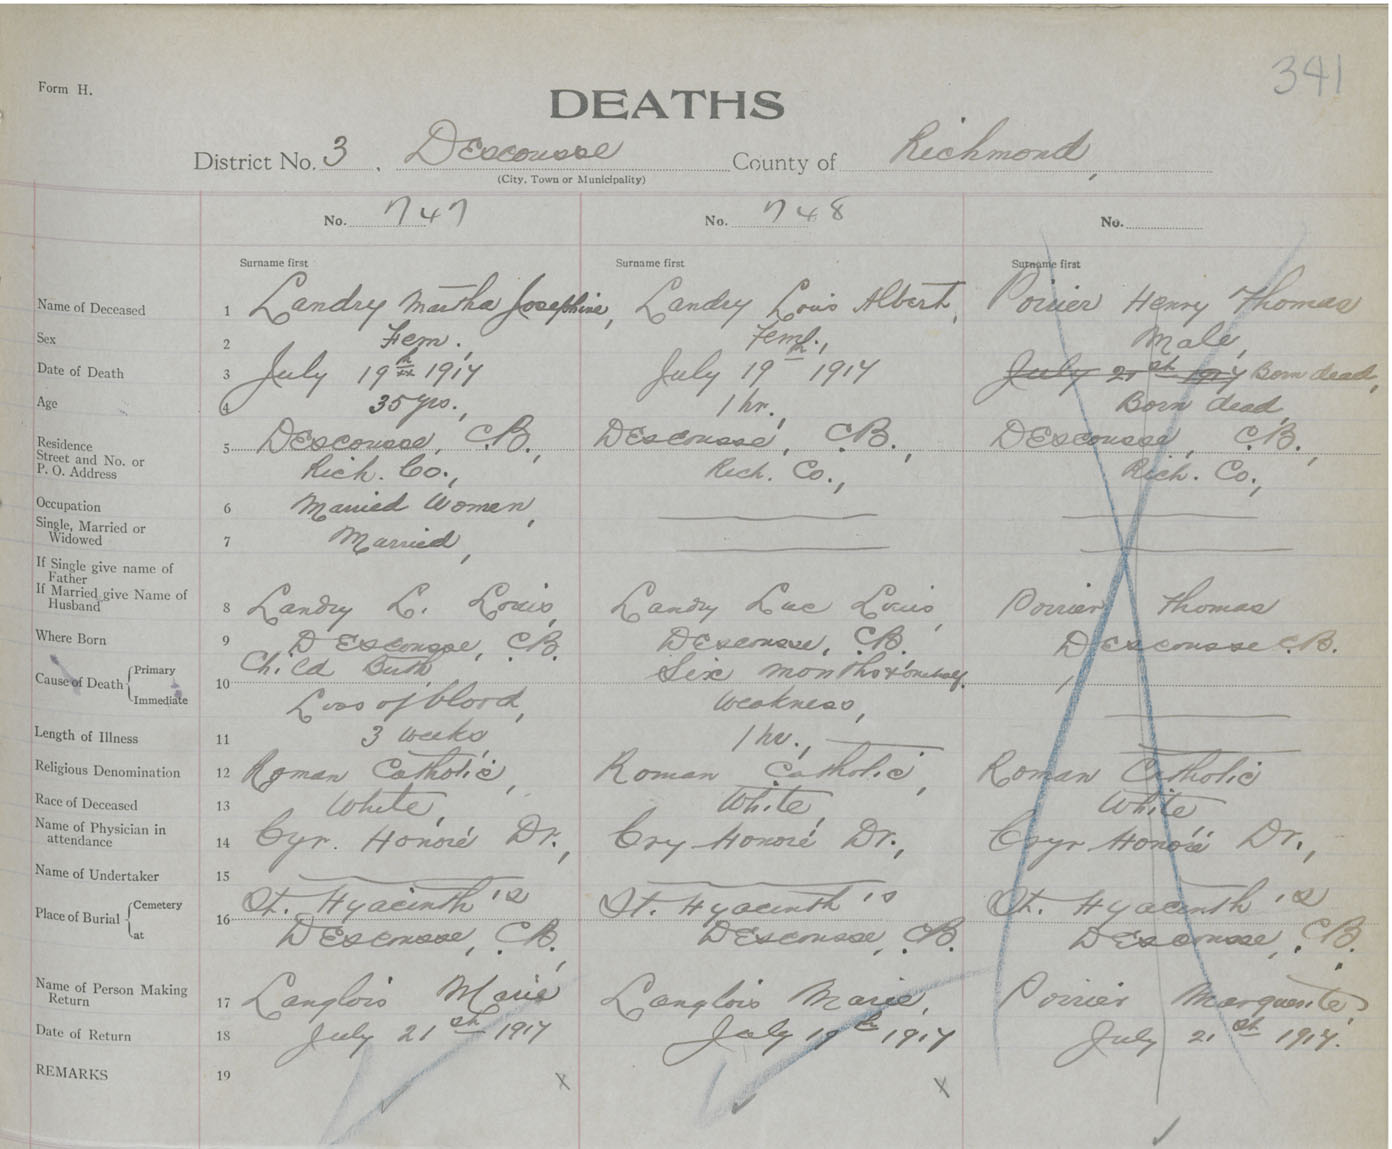 341
Form H.
DEATHS
District No. 3, DEscousse County of Richmond,
(City, Town or Municipality)
No. 747 No. 748 No.
Surname first Surname first Surname first
Name of Deceased 1 Landry Martha Josephine, Landry Louis Albert, Poirier Henry Thomas
Sex 2 Fem., Feml., Male,
Date of Death 3 July 19th 1917 July 19th 1917 July 21st 1917 Born dead,
Age 4 35 yrs., 1 hr., Born dead,
Residence 5 DEscousse, C.B., DEscousse, C.B., DEscousse, C.B.,
Street and No. or
P. O. Address Rich. Co., Rich. Co., Rich. Co.,
Occupation 6 Married Women,
Single, Married or
Widowed 7 Married,
If Single give name of
Father
If Married give Name of
Husband 8 Landry L. Louis, Landry Luc Louis, Poirier Thomas
Where Born 9 DEscousse, C.B. DEscousse, C.B. DEscousse C.B.
Cause of Death Primary 10 Child Birth Six months & one half
Immediate Loss of blood, Weakness,
Length of Illness 11 3 weeks 1 hr.,
Religious Denomination 12 Roman Catholic, Roman Catholic, Roman Catholic
Race of Deceased 13 White, White, White
Name of Physician in
attendance 14 Cyr. Honoré Dr., Cry Honoré Dr., Cyr Honoré Dr.,
Name of Undertaker 15
Place of Burial Cemetery 16 St. Hyacinth's St. Hyacinth's St. Hyacinth's
at DEscousse, C.B., DEscousse, C.B. DEscousse, C.B.
Name of Person Making
Return 17 Langlois Marie Langlois Marie, Poirier Marguerite,
Date of Return 18 July 21st 1917 July 19th 1917 July 21st 1917.
REMARKS 19 x x